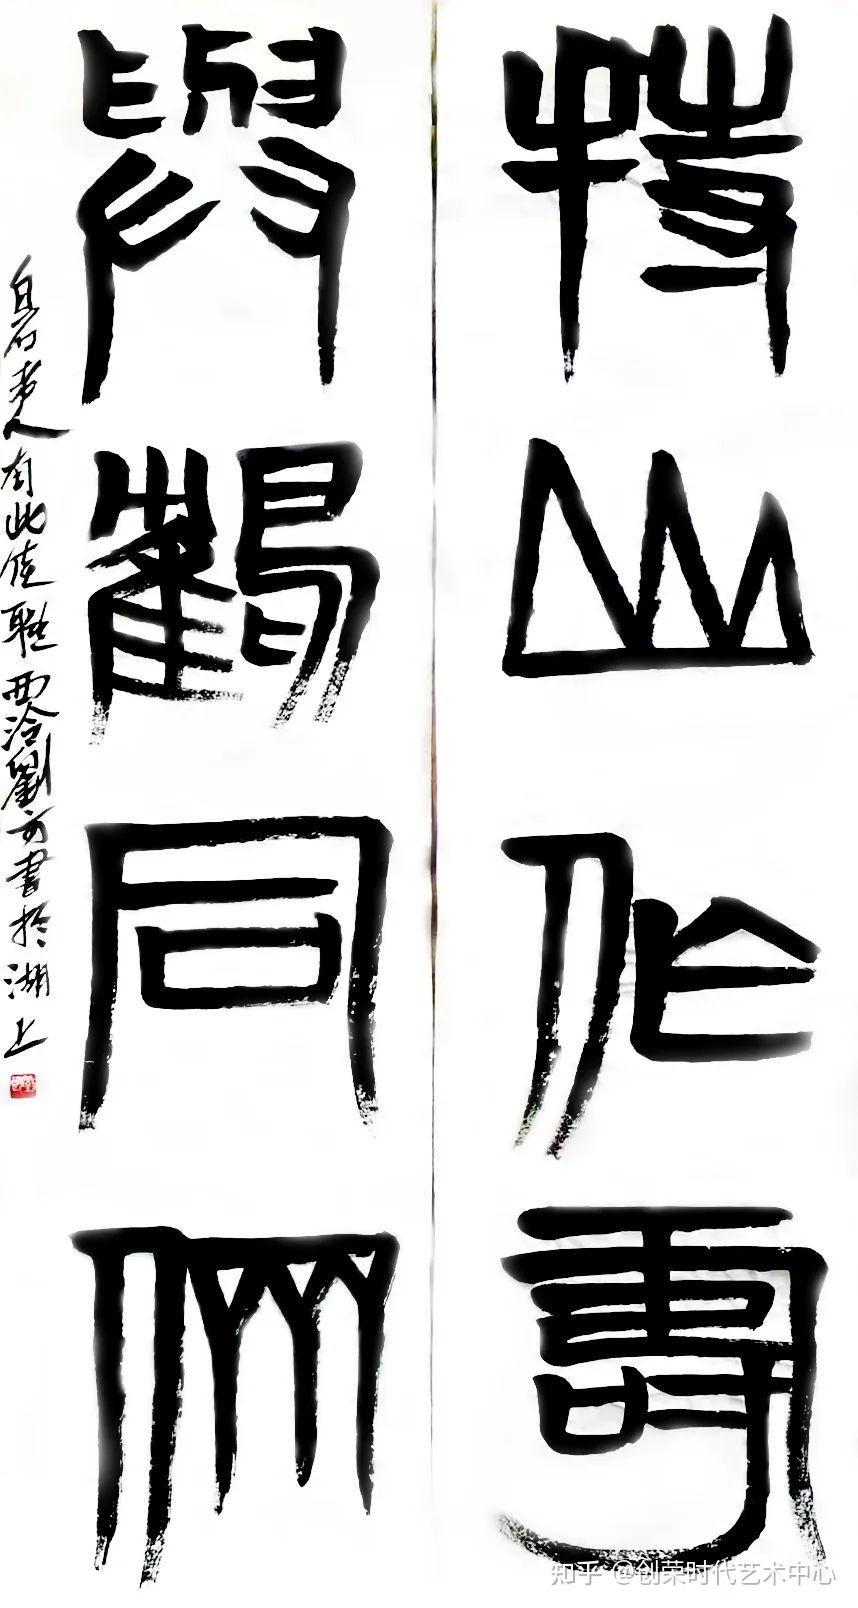 持山作壽
與鶴同儕
白石老人有此佳聯西泠劉江書於湖上
知乎 @创荣时代艺术中心